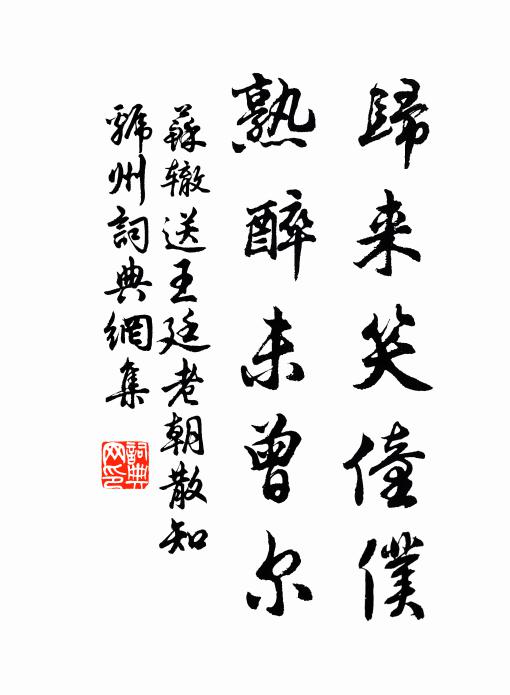 歸来笑僮僕
熟醉未曾尔
蘇辙送王廷老朝散知
虢州詞典網集
詞典网印